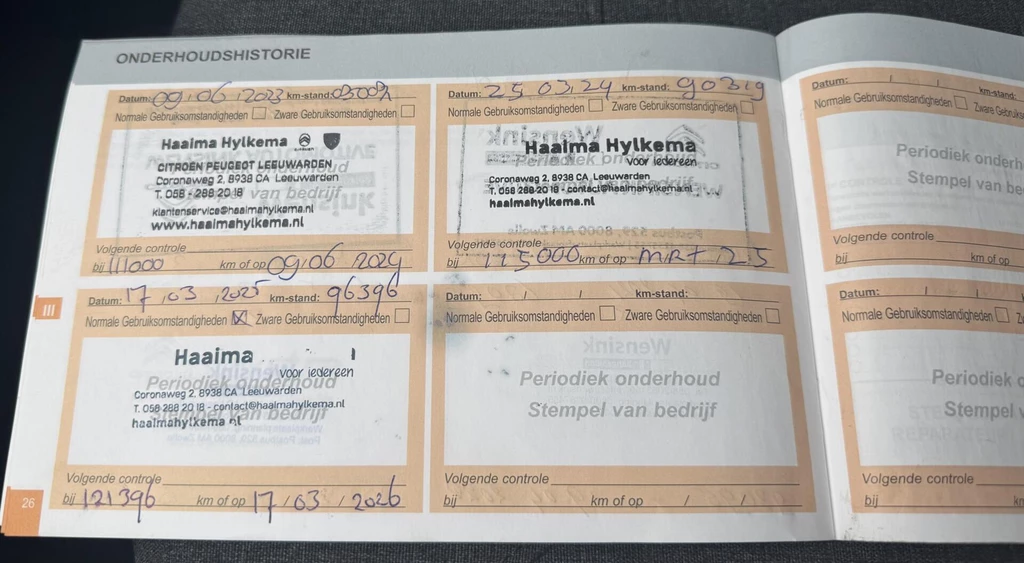 ONDERHOUDSHISTORIE
Datum: 09.06.2023 km-stand:
Normale Gebruiksomstandigheden Zware Gebruiksomstandigheden
Haaima Hylkema
CITROËN PEUGEOT LEEUWARDEN
Coronaweg 2, 8938 CA Leeuwarden
T. 058 - 288 20 18
klantenservice@haaimahylkema.nl
www.haaimahylkema.nl
Volgende controle
bij 111000 km of op 09.06.2024
Datum: 25 03.24 km-stand: 90319
Normale Gebruiksomstandigheden Zware Gebruiksomstandigheden
Wensink
Haaima Hylkema
Periodiek onderhoud
voor iedereen
Coronaweg 2, 8938 CA Leeuwarden
T. 058 288 20 18 - contact@haaimahylkema.nl
haaimahylkema.nl
Volgende controle
bij 115000 km of op MRT 25
III
Datum: 17/03/2025 km-stand: 96396
Normale Gebruiksomstandigheden X Zware Gebruiksomstandigheden
Haaima
voor iedereen
Periodiek onderhoud
Coronaweg 2, 8938 CA Leeuwarden
T. 058 288 20 18 - contact@haaimahylkema.nl
Stempel van bedrijf
haaimahylkema nl
Volgende controle
bij 121396 km of op 17/03/2026
Datum: / / km-stand:
Normale Gebruiksomstandigheden Zware Gebruiksomstandigheden
Wensink
Periodiek onderhoud
Stempel van bedrijf
Volgende controle
bij km of op / /
26
Datum: / / km-stand:
Normale Gebruiksomstandigheden Zware
Periodiek
Stempel van
Volgende controle
bij km of op
Datum: / /
Normale Gebruiksomstandigheden
Periodiek
Stempel
Volgende controle
bij